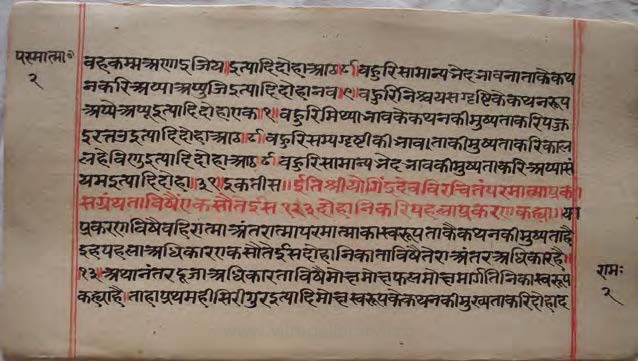 परमात्मा॰
२
वहकम्मअणाइजिय॥इत्यादिदोहाआठ॥८॥वहुरिसामान्यभेदभावनाताकैकथ
नकरिअप्पाअप्पुजिइत्यादिदोहानव॥९॥वहुरिनिश्चयसगृष्टिकैकथनरूप
अप्पेअप्पूइत्यादिदोहाएक॥१॥वहुरिमिथ्याभावकेकथनकीमुष्यताकरिपज्ज
इरत्तउइत्यादिदोहाआठ॥८॥वहुरिसम्यगृष्टीकीभावाताकीमुष्यताकरिकाल
लहेविणुइत्यादिदोहाआठ॥८॥वहुरिसामान्यभेदभावकीमुष्यताकरिअप्पासं
यमइत्यादिदोहा॥३१॥इकतीस॥॥इतिश्रीयोगिंद्रदेवविरचितंपरमात्माप्रका
सग्रंथताविषैंएकसोतेईस१२३दोहानिकरिपहलाप्रकरणकह्या॥॥या
प्रकरणविषैवहिरात्माअंतरात्मापरमात्माकास्वरूपताकैकथनकीमुष्यताहै
इहपहलाअधिकारएकसोतेईसदोहानिकाताविषैतेराअंतरअधिकारहै॥
१३॥अथानंतरदूजाअधिकारताविषैमोक्षमोक्षफलमोक्षमार्गतिनिकास्वरूप
कह्याहै॥ताहाप्रथमहीसिरीगुरइत्यादिमोक्षस्वरूपकेकथनकीमुख्यताकरिदोहाद
रामः
२